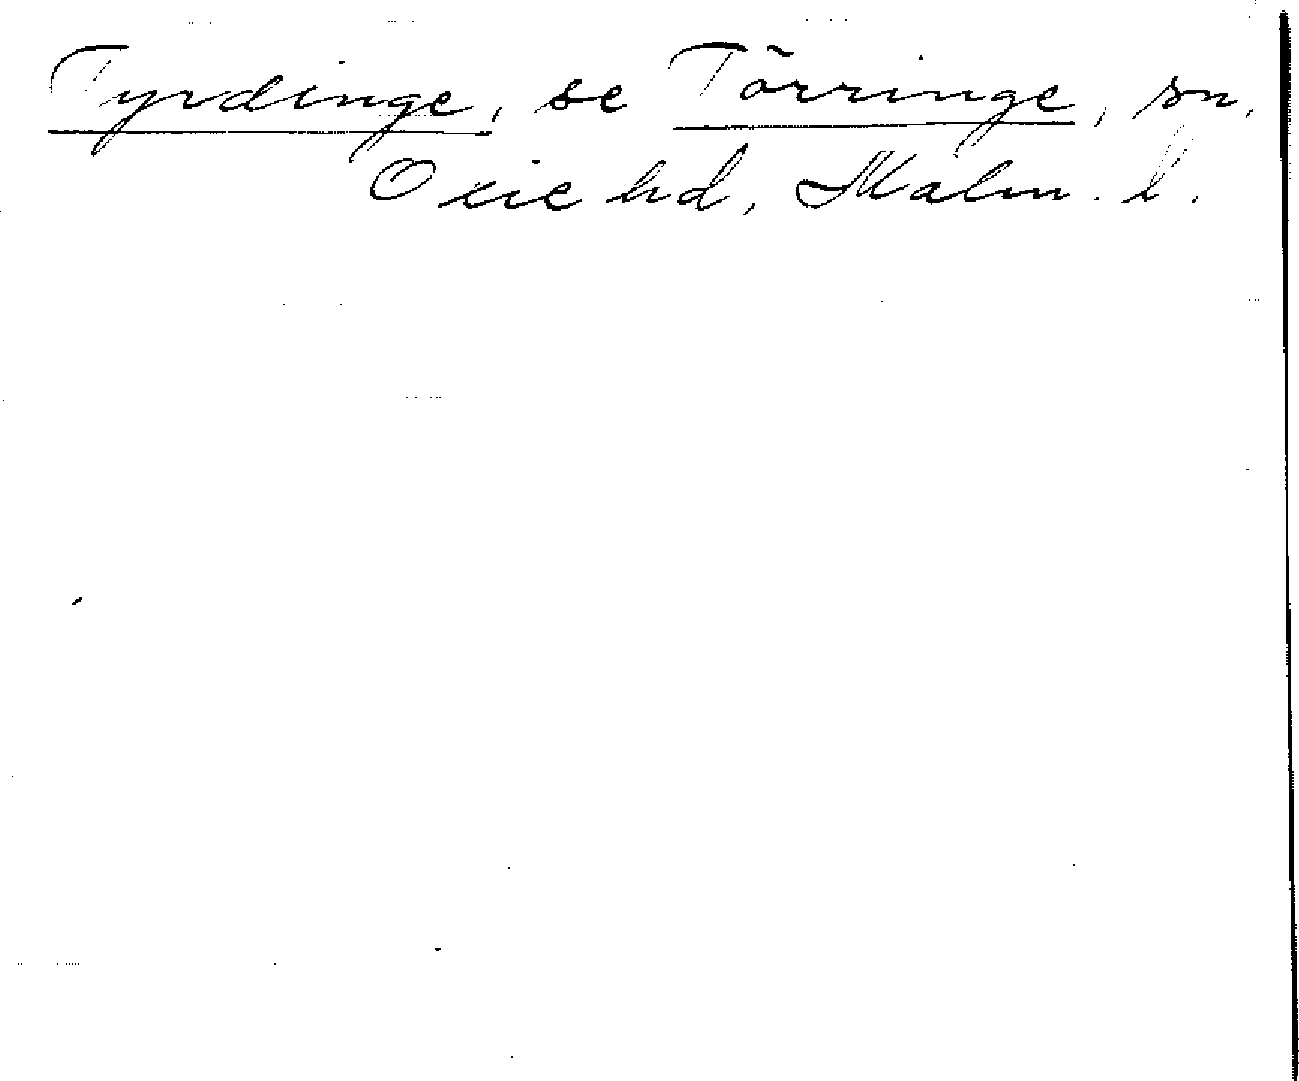 Tyrdinge, se Törringe, sn,
Oxie hd, Malm. l.